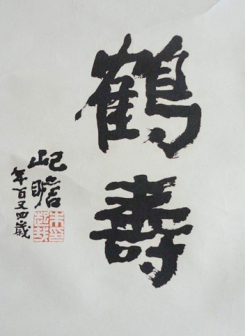 鶴壽
屺瞻
年百又四歲